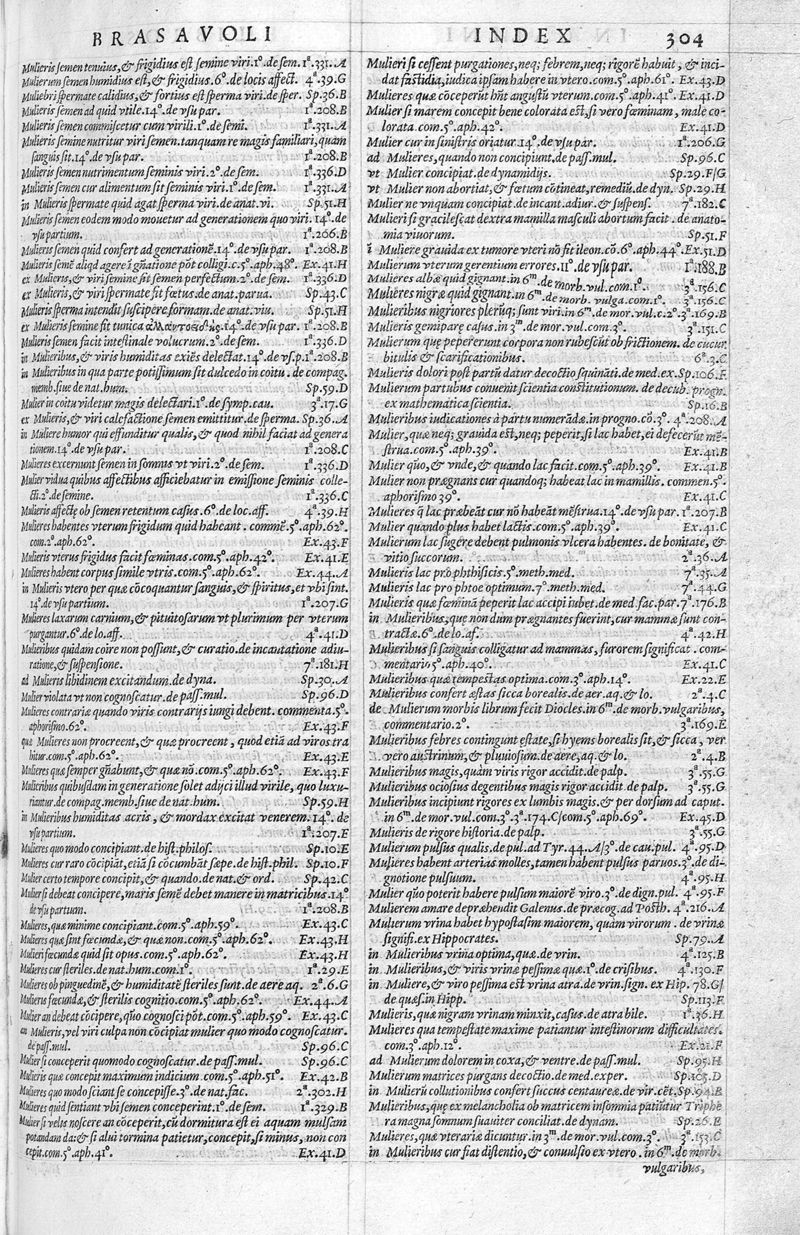 BRASAVOLI
Mulieris semen tenuius,& frigidius est semine viri.1º.de sem. 1ª.331.A
Mulierum semen humidius est,& frigidius.6º.de locis affect. 4ª.39.G
Muliebri spermate calidius,& fortius est sperma viri.de sper. Sp.36.B
Mulieris semen ad quid vtile.14º.de vsu par. 1ª.208.B
Mulieris semen commiscetur cum virili.1º.de semi. 1ª.331.A
Mulieris semine nutritur viri semen.tanquam re magis familiari,quam
sanguis sit.14º.de vsu par. 1ª.208.B
Mulieris semen nutrimentum seminis viri.2º.de sem. 1ª.336.D
Mulieris semen cur alimentum sit seminis viri.1º.de sem. 1ª.331.A
in Mulieris spermate quid agat sperma viri.de anat.vi. Sp.51.H
Mulieris semen eodem modo mouetur ad generationem quo viri.14º.de
vsu partium. 1ª.206.B
Mulieris semen quid confert ad generationē.14º.de vsu par. 1ª.208.B
Mulieris semē aliqd agere ī gñatione põt colligi.c.5º.aph.48º. Ex.41.H
ex Mulieris,& viri semine sit semen perfectum.2º.de sem. 1ª.336.D
ex Mulieris,& viri spermate sit fœtus.de anat.parua. Sp.43.C
Mulieris sperma intendit suscipere formam.de anat.viu. Sp.51.H
ex Mulieris semine sit tunica ἀλλαντοειδὴς.14º.de vsu par. 1ª.208.B
Mulieris semen facit intestinale volucrum.2º.de sem. 1ª.336.D
in Mulieribus,& viris humiditas exiēs delectat.14º.de vs.p. 1ª.208.B
in Mulieribus in qua parte potissimum sit dulcedo in coitu.de compag.
memb.siue de nat.hum. Sp.59.D
Mulier in coitu videtur magis delectari.1º.de symp.cau. 3ª.17.G
ex Mulieris,& viri calefactione semen emittitur.de sperma. Sp.36.A
in Muliere humor qui effunditur qualis,& quod nihil faciat ad genera
tionem.14º.de vsu par. 1ª.208.C
Mulieres excernunt semen in somnis vt viri.2º.de sem. 1ª.336.D
Mulier vidua quibus affectibus afficiebatur in emissione seminis colle-
cti.2º.de semine. 1ª.336.C
Mulieris affectę ob semen retentum casus.6º.de loc.aff. 4ª.39.H
Mulieres habentes vterum frigidum quid habeant. commē.5º.aph.62º.
com.2º.aph.62º. Ex.43.F
Mulieris vterus frigidus facit fœminas.com.5º.aph.42º. Ex.41.E
Mulieres habent corpus simile vtris.com.5º.aph.62º. Ex.44.A
in Mulieris vtero per quæ cōcoquantur sanguis,& spiritus,et vbi sint.
14º.de vsu partium. 1ª.207.G
Mulieres laxarum carnium,& pituitosarum vt plurimum per vterum
purgantur.6º.de lo.aff. 4ª.41.D
Mulieribus quidam coire non possunt,& curatio.de incantatione adiu-
ratione,& suspensione. 7ª.181.H
ad Mulieris libidinem excitandum.de dyna. Sp.30.A
Mulier violata vt non cognoscatur.de pass.mul. Sp.96.D
Mulieres contrariæ quando viris contrarijs iungi debent. commenta.5º.
aphorismo.62º. Ex.43.F
quæ Mulieres non procreent,& quæ procreent, quod etiā ad viros tra
hitur.com.5º.aph.62º. Ex.43.E
Mulieres quæ semper gñabunt,& quæ nō.com.5º.aph.62º. Ex.43.F
Mulieribus quibusdam in generatione solet adijci illud virile, quo luxu-
riantur.de compag.memb.siue de nat.hum. Sp.59.H
in Mulieribus humiditas acris, & mordax excitat venerem.14º.de
vsu partium. 1ª.207.E
Mulieres quo modo concipiant.de hist.philos. Sp.10.E
Mulieres cur raro cōcipiāt,etiā si cōcumbāt sæpe.de hist.phil. Sp.10.F
Mulier certo tempore concipit,& quando.de nat.& ord. Sp.42.C
Mulier si debeat concipere,maris semē debet manere in matricibus.14º
de vsu partium. 1ª.208.B
Mulieres,quæ minime concipiant.com.5º.aph.59º. Ex.43.C
Mulieres quæ sint fœcundæ,& quæ non.com.5º.aph.62º. Ex.43.H
Mulieri fœcundæ quid sit opus.com.5º.aph.62º. Ex.43.H
Mulieres cur steriles.de nat.hum.com.1º. 1ª.29.E
Mulieres ob pinguedinē,& humiditatē steriles sunt.de aere aq. 2ª.6.G
Mulieris fœcundæ,& sterilis cognitio.com.5º.aph.62º. Ex.44.A
Mulier an debeat cōcipere,quo cognosci pōt.com.5º.aph.59º. Ex.43.C
an Mulieris,vel viri culpa non cōcipiat mulier quo modo cognoscatur.
de pass.mul. Sp.96.C
Mulier si conceperit quomodo cognoscatur.de pass.mul. Sp.96.C
Mulieris quæ concepit maximum indicium com.5º.aph.51º. Ex.42.B
Mulieres quo modo sciant se concepisse.3º.de nat.fac. 2ª.302.H
Mulieres quid sentiant vbi semen conceperint.1º.de sem. 1ª.329.B
Mulier si velis noscere an cōceperit,cū dormitura est ei aquam mulsam
potandam da:& si alui tormina patietur,concepit,si minus, non con
cepit.com.5º.aph.41º. Ex.41.D
INDEX 304
Mulieri si cessent purgationes,neq; febrem,neq; rigorē habuit, & inci-
dat fastidia,iudica ipsam habere in vtero.com.5º.aph.61º. Ex.43.D
Mulieres quæ cōceperūt hñt angustū vterum.com.5º.aph.41º. Ex.41.D
Mulier si marem concepit bene colorata est,si vero fœminam, male co-
lorata.com.5º.aph.42º. Ex.41.D
Mulier cur in sinistris oriatur.14º.de vsu par. 1ª.206.G
ad Mulieres,quando non concipiunt.de pass.mul. Sp.96.C
vt Mulier concipiat.de dynamidijs. Sp.29.F/G
vt Mulier non abortiat,& fœtum cōtineat,remediū.de dyn. Sp.29.H
Mulier ne vnquam concipiat.de incant.adiur.& suspens. 7ª.182.C
Mulieri si gracilescat dextra mamilla masculi abortum facit.de anato-
mia viuorum. Sp.51.F
ī Muliere grauida ex tumore vteri nō fit ileon.cō.6º.aph.44º. Ex.51.D
Mulierum vterum gerentium errores.11º.de vsu par. 1ª.188.B
Mulieres albæ quid gignant.in 6ᵐ.de morb.vul.com.1º. 3ª.156.C
Mulieres nigræ quid gignant.in 6ᵐ.de morb.vulga.com.1º. 3ª.156.C
Mulieribus nigriores plerūq; sunt viri.in 6ᵐ.de mor.vul.c.2º. 3ª.169.B
Mulieris gemiparę casus.in 3ᵐ.de mor.vul.com.3º. 3ª.151.C
Mulierum quę pepererunt corpora non rubescūt ob frictionem. de cucur
bitulis & scarificationibus. 6ª.3.C
Mulieris dolori post partū datur decoctio squināti.de med.ex. Sp.106.F
Mulierum partubus conuenit scientia constitutionum. de decub. progn.
ex mathematica scientia. Sp.16.B
Mulieribus iudicationes à partu numerādæ.in progno.cō.3º. 4ª.208.A
Mulier,quæ neq; grauida est,neq; peperit,si lac habet,ei defecerūt mē-
strua.com.5º.aph.39º. Ex.41.B
Mulier quo,& vnde,& quando lac facit.com.5º.aph.39º. Ex.41.B
Mulier non prægnans cur quandoq; habeat lac in mamillis. commen.5º.
aphorismo 39º. Ex.41.C
Mulieres q̄ lac præbēāt cur nō habēāt mēstrua.14º.de vsu par. 1ª.207.B
Mulier quando plus habet lactis.com.5º.aph.39º. Ex.41.C
Mulierum lac sugere debent pulmonis vlcera habentes. de bonitate, &
vitio succorum. 2ª.36.A
Mulieris lac pro phthisicis.5º.meth.med. 7ª.35.A
Mulieris lac pro phtoe optimum.7º.meth.med. 7ª.44.G
Mulieris quæ fœminā peperit lac accipi iubet.de med.fac.par. 7ª.176.B
in Mulieribus,quę non dum prægnantes fuerint,cur mammæ sunt con-
tractæ.6º.de lo.af. 4ª.42.H
Mulieribus si sanguis colligatur ad mammas, furorem significat. com-
mentario 5º.aph.40º. Ex.41.C
Mulieribus quæ tempestas optima.com.3º.aph.14º. Ex.22.E
Mulieribus confert æstas sicca borealis.de aer.aq.& lo. 2ª.4.C
de Mulierum morbis librum fecit Diocles.in 6ᵐ.de morb.vulgaribus,
commentario.2º. 3ª.169.E
Mulieribus febres contingunt estate,si hyems borealis sit,& sicca, ver
vero austrinum,& pluuiosum.de aere,aq.& lo. 2ª.4.B
Mulieribus magis,quam viris rigor accidit.de palp. 3ª.55.G
Mulieribus ociosius degentibus magis rigor accidit.de palp. 3ª.55.G
Mulieribus incipiunt rigores ex lumbis magis.& per dorsum ad caput.
in 6ᵐ.de mor.vul.com.3º.3ª.174.C/com.5º.aph.69º. Ex.45.D
Mulieris de rigore historia.de palp. 3ª.55.G
Mulierum pulsus qualis.de pul.ad Tyr.44.A/3º.de cau.pul. 4ª.95.D
Mulieres habent arterias molles,tamen habent pulsus paruos.3º.de di-
gnotione pulsuum. 4ª.95.H
Mulier quo poterit habere pulsum maiorē viro.3º.de dign.pul. 4ª.95.F
Mulierem amare depræhendit Galenus.de præcog.ad Posth. 4ª.216.A
Mulierum vrina habet hypostasim maiorem, quam virorum. de vrinæ
signifi.ex Hippocrates. Sp.79.A
in Mulieribus vrina optima,quæ.de vrin. 4ª.125.B
in Mulieribus,& viris vrinæ pessimæ quæ.1º.de crisibus. 4ª.130.F
in Muliere,& viro pessima est vrina atra.de vrin.sign.ex Hip. 78.G/
de quæs.in Hipp. Sp.113.F
Mulieris,quæ nigram vrinam minxit,casus.de atra bile. 1ª.36.H
Mulieres qua tempestate maxime patiantur intestinorum difficultates.
com.3º.aph.12º. Ex.21.F
ad Mulierum dolorem in coxa,& ventre.de pass.mul. Sp.95.H
Mulierum matrices purgans decoctio.de med.exper. Sp.105.D
in Mulierū collutionibus confert succus centaureæ.de vir.cēt. Sp.94.B
Mulieribus,quę ex melancholia ob matricem insomnia patiūtur Triphe
ra magna somnum suauiter conciliat.de dynam. Sp.26.E
Mulieres,quæ vterariæ dicuntur.in 3ᵐ.de mor.vul.com.3º. 3ª.153.C
in Mulieribus cur fiat distentio,& conuulsio ex vtero.in 6ᵐ.de morb.
vulgaribus,